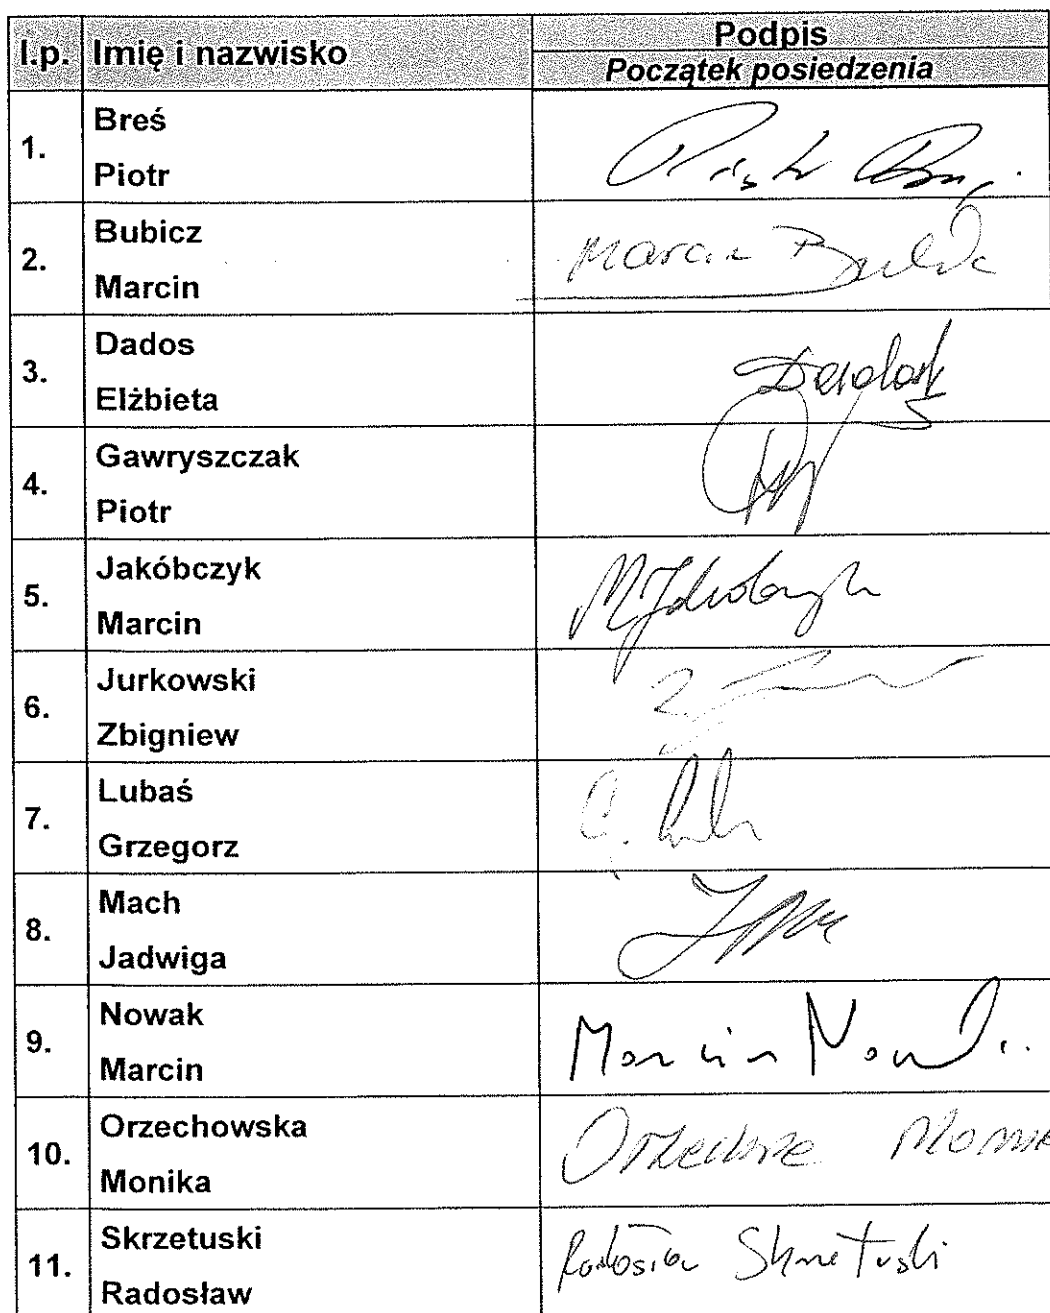 l.p. Imię i nazwisko Podpis
Początek posiedzenia
1. Breś
Piotr
2. Bubicz
Marcin
Marcin
3. Dados
Elżbieta
4. Gawryszczak
Piotr
5. Jakóbczyk
Marcin
6. Jurkowski
Zbigniew
7. Lubaś
Grzegorz
8. Mach
Jadwiga
9. Nowak
Marcin
Marcin Nowak
10. Orzechowska
Monika
11. Skrzetuski
Radosław
Radosław Skrzetuski